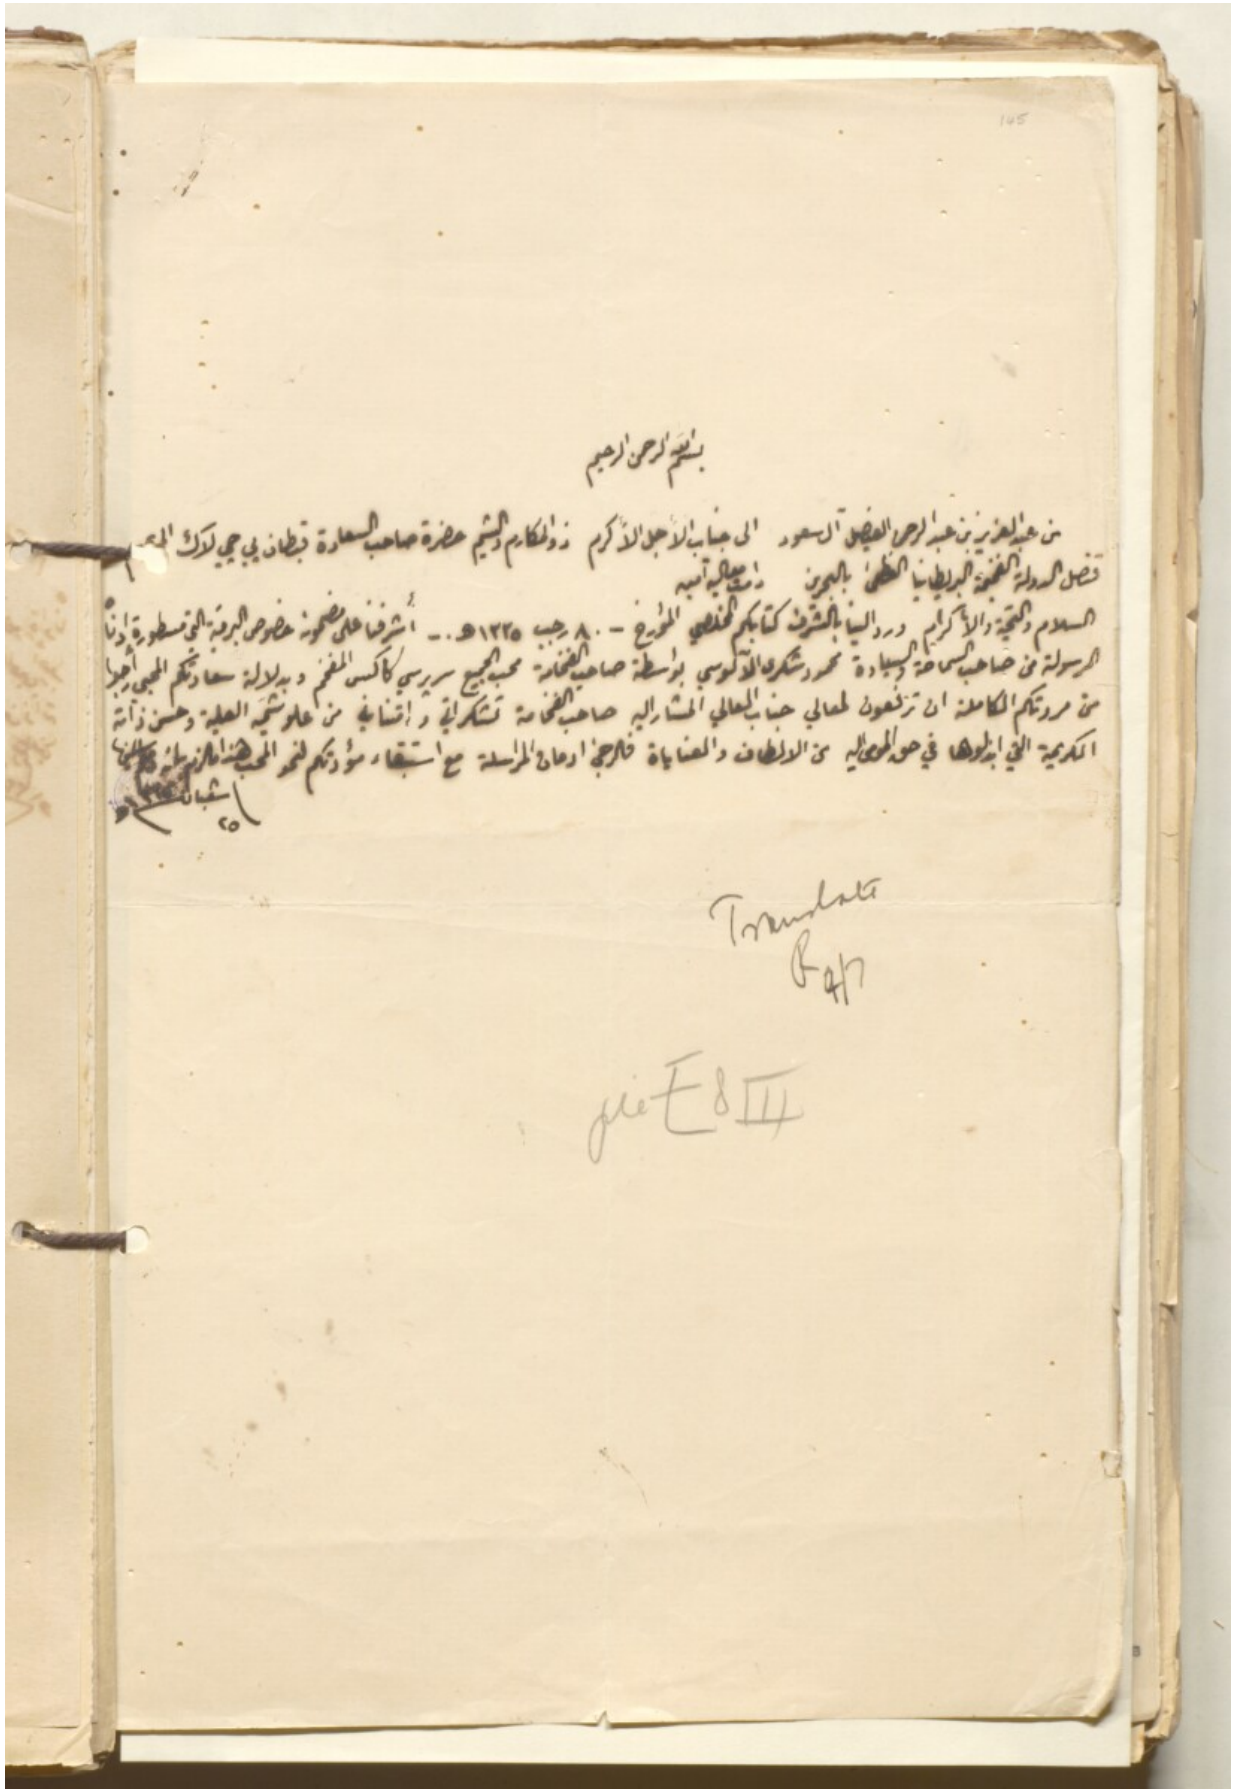 145
بسم الله الرحمن الرحيم
من عبد العزيز بن عبد الرحمن الفيصل آل سعود الى جناب الأجل الأكرم ذو المكارم والشيم حضرة صاحب السعادة قبطان بي جي لاك
قنصل الدولة الفخيمة البريطانيا العظمى بالبحرين دامت معاليه آمين
السلام والتحية والأكرام ورد الينا بالتشرف كتابكم المؤرخ - ٨٠ رجب ١٣٣٥هـ - أشرفنا على مضمونه خصوص البرقية التي مسطورة
المرسولة من صاحب السماحة والسيادة محمود شكري الآلوسي بواسطة صاحب الفخامة محب الجميع سربرسي كاكس المفخم وبدلالة سعادتكم
من مروتكم الكاملة ان ترفعون لمعالي جناب المعالي المشار اليه صاحب الفخامة تشكراتي و من علو شيمه العلية وحسن ذاته
الكريمة التي ابدلوها في حق الموما اليه من الالطاف والعناياة فالرجئ ادمان المراسلة مع استبقاء مؤدتكم لنحو المحب هذا مالزم
٢٥ شعبان
Translate
4/7
file E 8 III